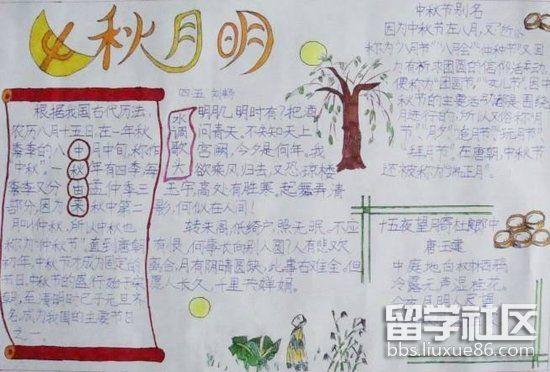 中秋月明
四五 刘畅
根据我国古代历法,
农历八月十五日,在一年秋
季的八月中旬,称作
"中秋"。一年有四季,每
季又分孟、仲、季三
部分,因为秋中第二
月叫仲秋,所以中秋也
称为"仲秋节"。直到唐朝
初年,中秋节才成为固定的
节日。中秋节的盛行始于宋
朝,至明清时已于元旦齐
名,成为我国的主要节日
之一
中秋由来
水调歌头
明月几时有?把酒
问青天。不知天上
宫阙,今夕是何年。我
欲乘风归去,又恐琼楼
玉宇,高处不胜寒。起舞弄清
影,何似在人间!
转朱阁,低绮户,照无眠。不应
有恨,何事长向别人圆?人有悲欢
离合,月有阴晴圆缺,此事古难全。但
愿人长久,千里共婵娟。
中秋节别名
因为中秋节在八月,又
称为"八月节""八月会""仲秋节"又因
为有祈求团圆的信仰活动,
便称为"团圆节""女儿节"。因中
秋节的主要活动都是围绕
月进行的,所以又俗称"月
节""月夕""追月节""玩月节"
"拜月节"。在唐朝,中秋节
还被称为"端正月"。
十五夜望月寄杜郎中
唐 王建
中庭地白树栖鸦,
冷露无声湿桂花。
今夜月明人尽望
留学社区
bbs.liuxue86.com